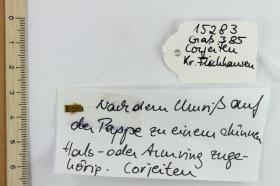 15283
Grab 385
Corjeiten
Kr. Fischhausen
Nach dem Umriß auf
der Pappe zu einem dünnen
Hals- oder Armring zuge-
hörig. Corjeiten